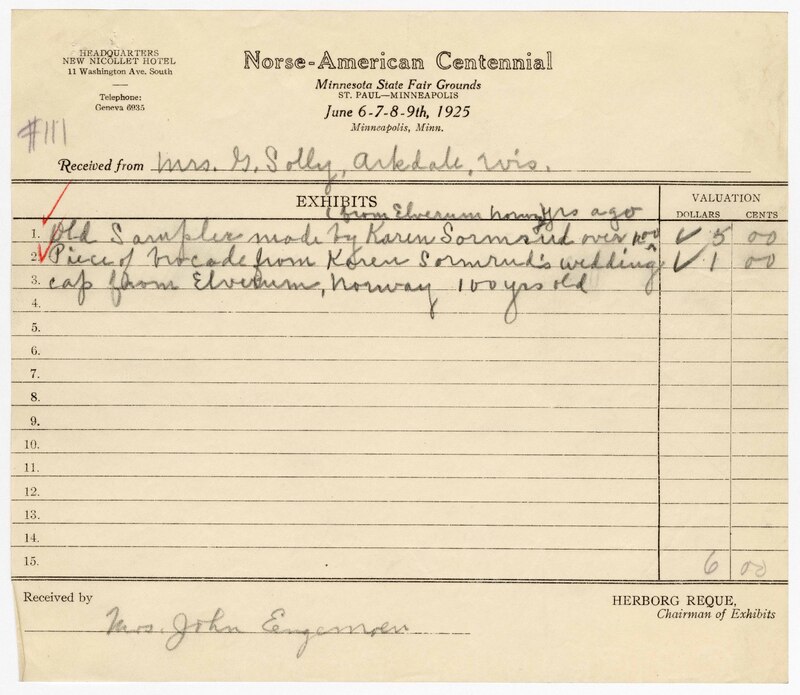 HEADQUARTERS
NEW NICOLLET HOTEL
11 Washington Ave. South
Telephone:
Geneva 6935
Norse-American Centennial
Minnesota State Fair Grounds
ST. PAUL—MINNEAPOLIS
June 6-7-8-9th, 1925
Minneapolis, Minn.
#111
Received from Mrs. G. Solly, Arkdale, Wis.
EXHIBITS
VALUATION
DOLLARS CENTS
(from Elverum Norway) yrs ago
1. Old Sampler made by Karen Sormrud over 100 ✓ 5 00
2. Piece of brocade from Karen Sormrud's wedding ✓ 1 00
3. cap from Elverum, Norway 100 yrs old
4.
5.
6.
7.
8.
9.
10.
11.
12.
13.
14.
15. 6 00
Received by
Mrs. John Engemoen
HERBORG REQUE,
Chairman of Exhibits